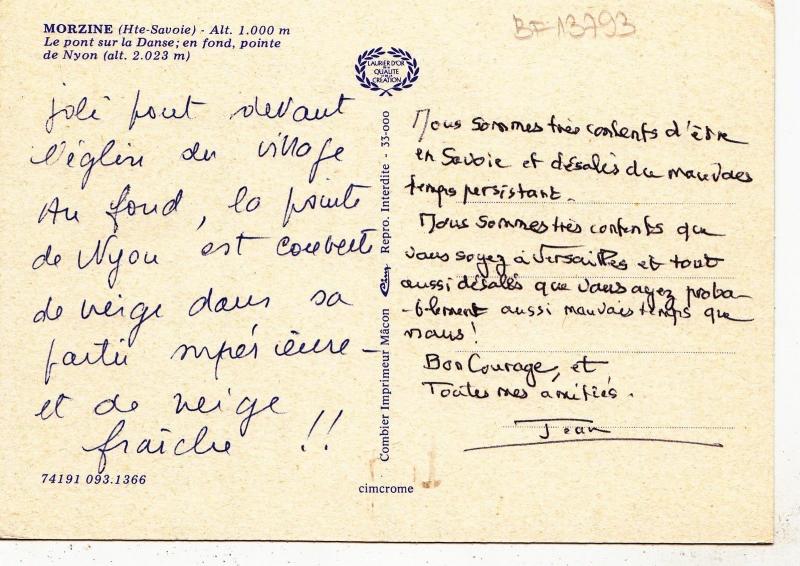 MORZINE (Hte-Savoie) - Alt. 1.000 m
Le pont sur la Danse; en fond, pointe
de Nyon (alt. 2.023 m)
BF 13793
LAURIER D'OR
DE LA
QUALITE
CREATION
joli pont devant
l'église du village
Au fond, la pointe
de Nyon est couverte
de neige dans sa
partie supérieure -
et de neige
fraîche !!
74191 093.1366
Combier Imprimeur Mâcon Cim Repro. Interdite - 33-000
cimcrome
Nous sommes très contents d'être
en Savoie et désolés du mauvais
temps persistant.
Nous sommes très contents que
vous soyez à Versailles et tout
aussi désolés que vous ayez proba-
-blement aussi mauvais temps que
nous!
Bon Courage, et
Toutes mes amitiés.
Jean